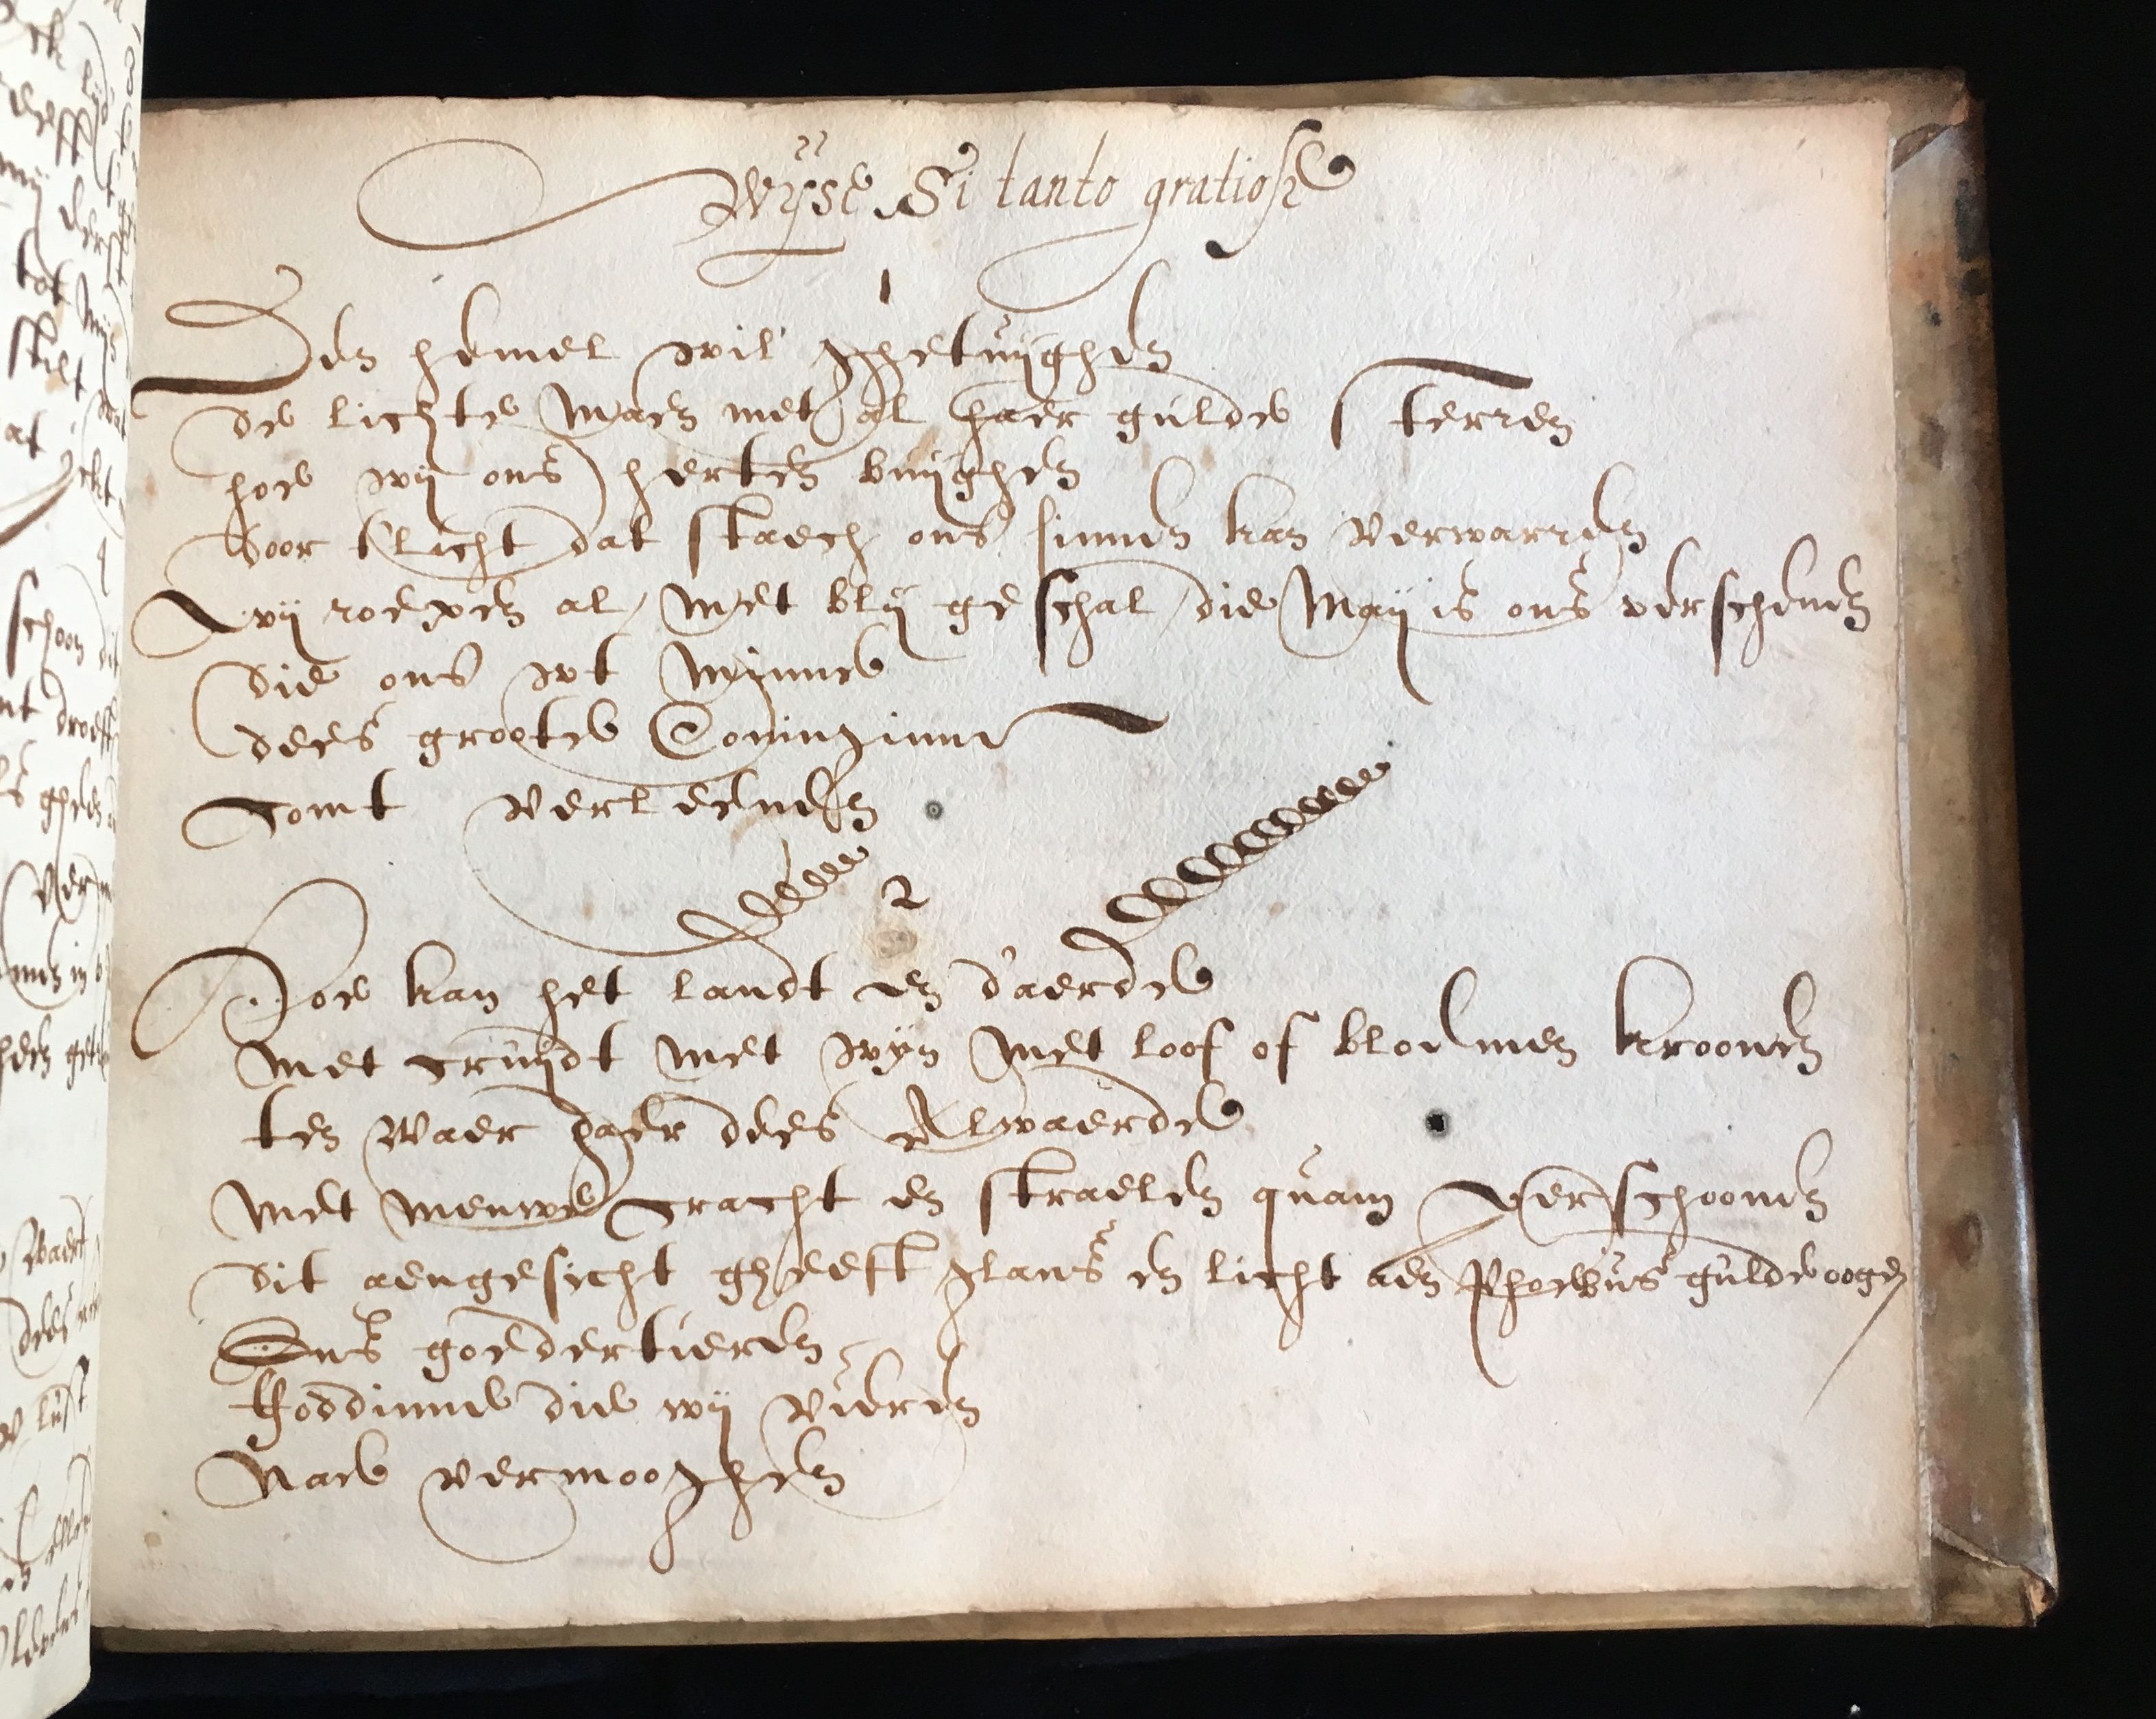 Wÿse Si tanto gratiose
1
Den hemel wil ghetuÿghen
de lichte Maen met al haer gulde sterren
hoe wÿ ons herten buÿghen
Voor t'licht dat staech ons sinnen kan verwarren
Wÿ roepen al, Met blÿ geschal, die Maÿ is ons verschenen
die ons wt Minne
dees groote Coninginne
Comt verleenen
2
Hoe kan het landt en d'aerde
Met cruÿdt Met wÿn Met loof of bloemen kroonen
ten waer haer dees Alwaerde
Met nieuwe cracht en straelen quam verschoonen
dit aengesicht gheeft glans en licht aen Phoebus gulde oogen
Ons goedertieren
Goddinne die wÿ vieren
Nae vermooghen